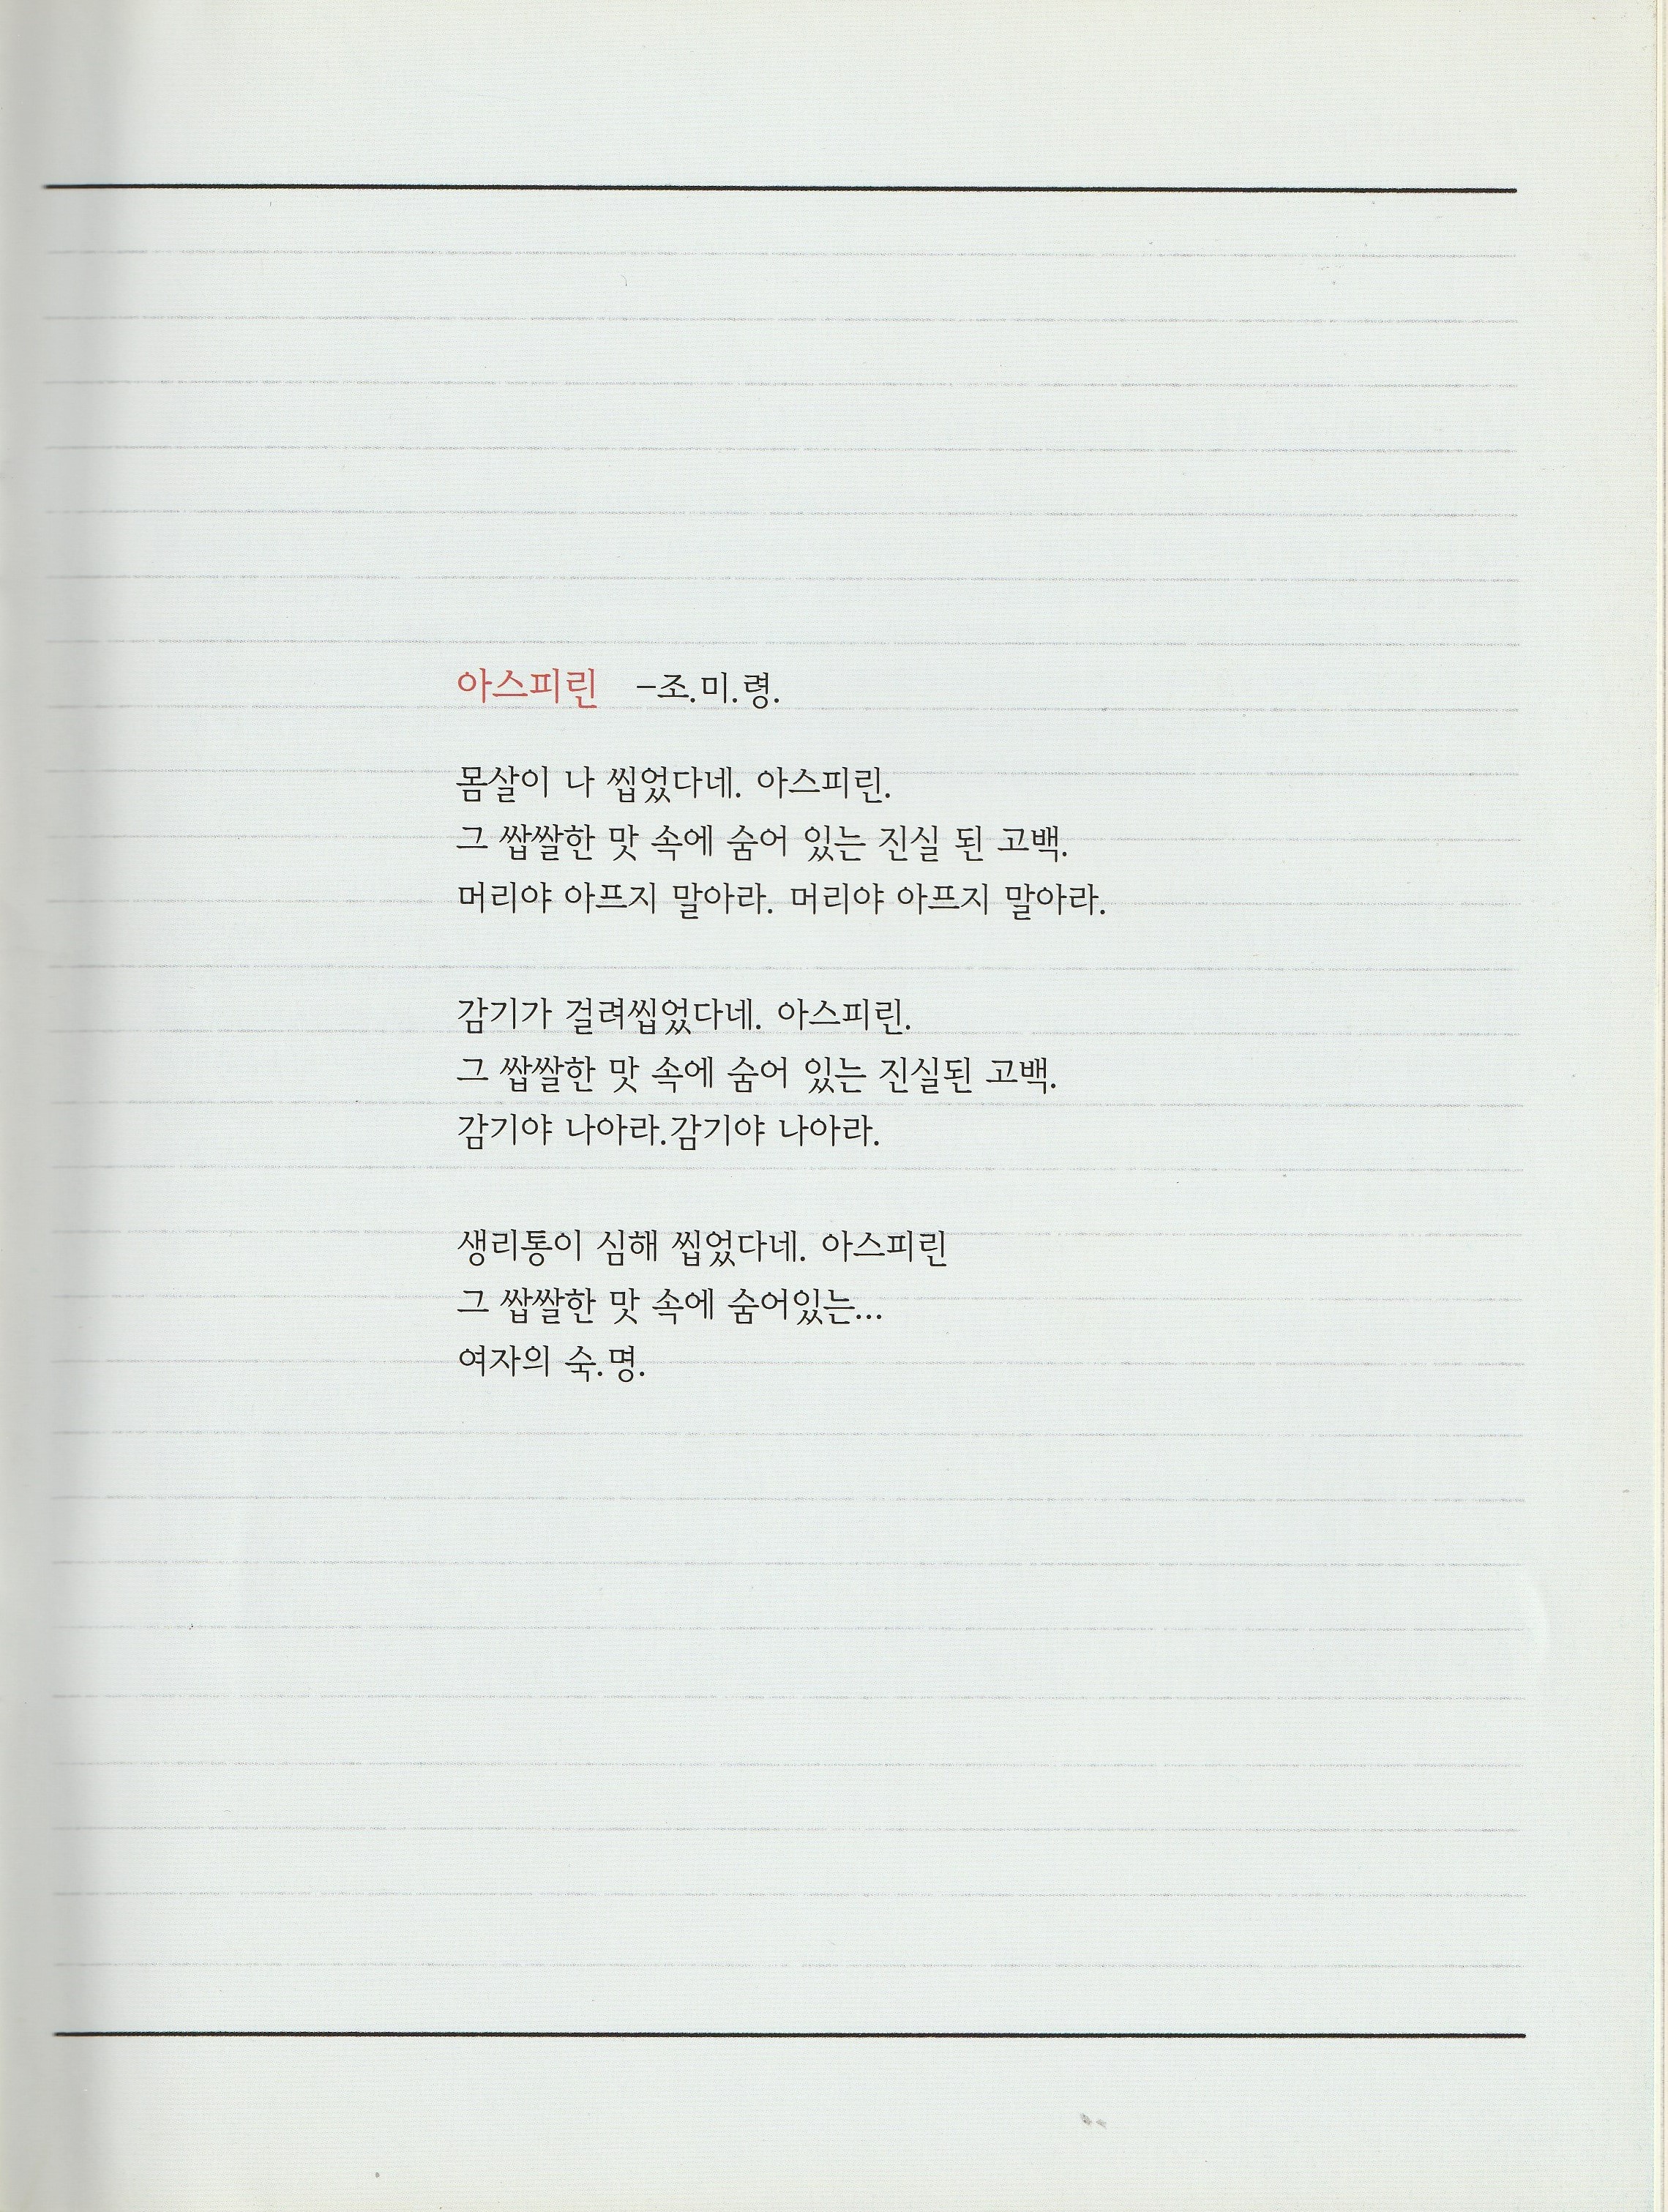 아스피린 –조.미.령.
몸살이 나 씹었다네. 아스피린.
그 쌉쌀한 맛 속에 숨어 있는 진실 된 고백.
머리야 아프지 말아라. 머리야 아프지 말아라.
감기가 걸려씹었다네. 아스피린.
그 쌉쌀한 맛 속에 숨어 있는 진실된 고백.
감기야 나아라.감기야 나아라.
생리통이 심해 씹었다네. 아스피린
그 쌉쌀한 맛 속에 숨어있는...
여자의 숙.명.